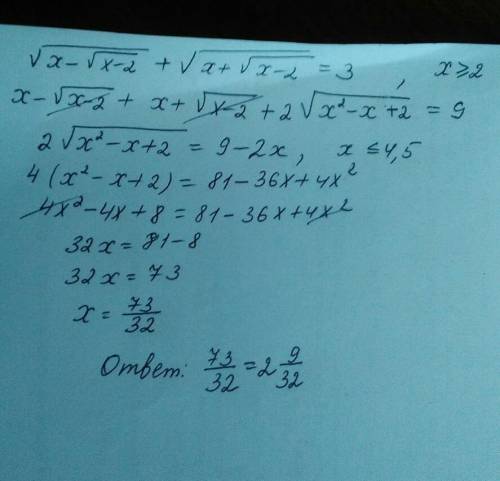 √(x-√(x-2)) + √(x+√(x-2)) = 3 , x⩾2
x-√(x-2) + x+√(x-2) + 2√(x²-x+2) = 9
2√(x²-x+2) = 9-2x, x ≤ 4,5
4(x²-x+2) = 81-36x+4x²
4x²-4x+8 = 81-36x+4x²
32x = 81-8
32x = 73
x = 73/32
Ответ: 73/32 = 2 9/32